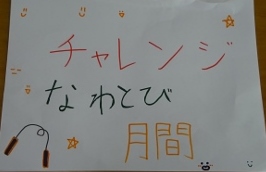 チャレンジ
なわとび
月間